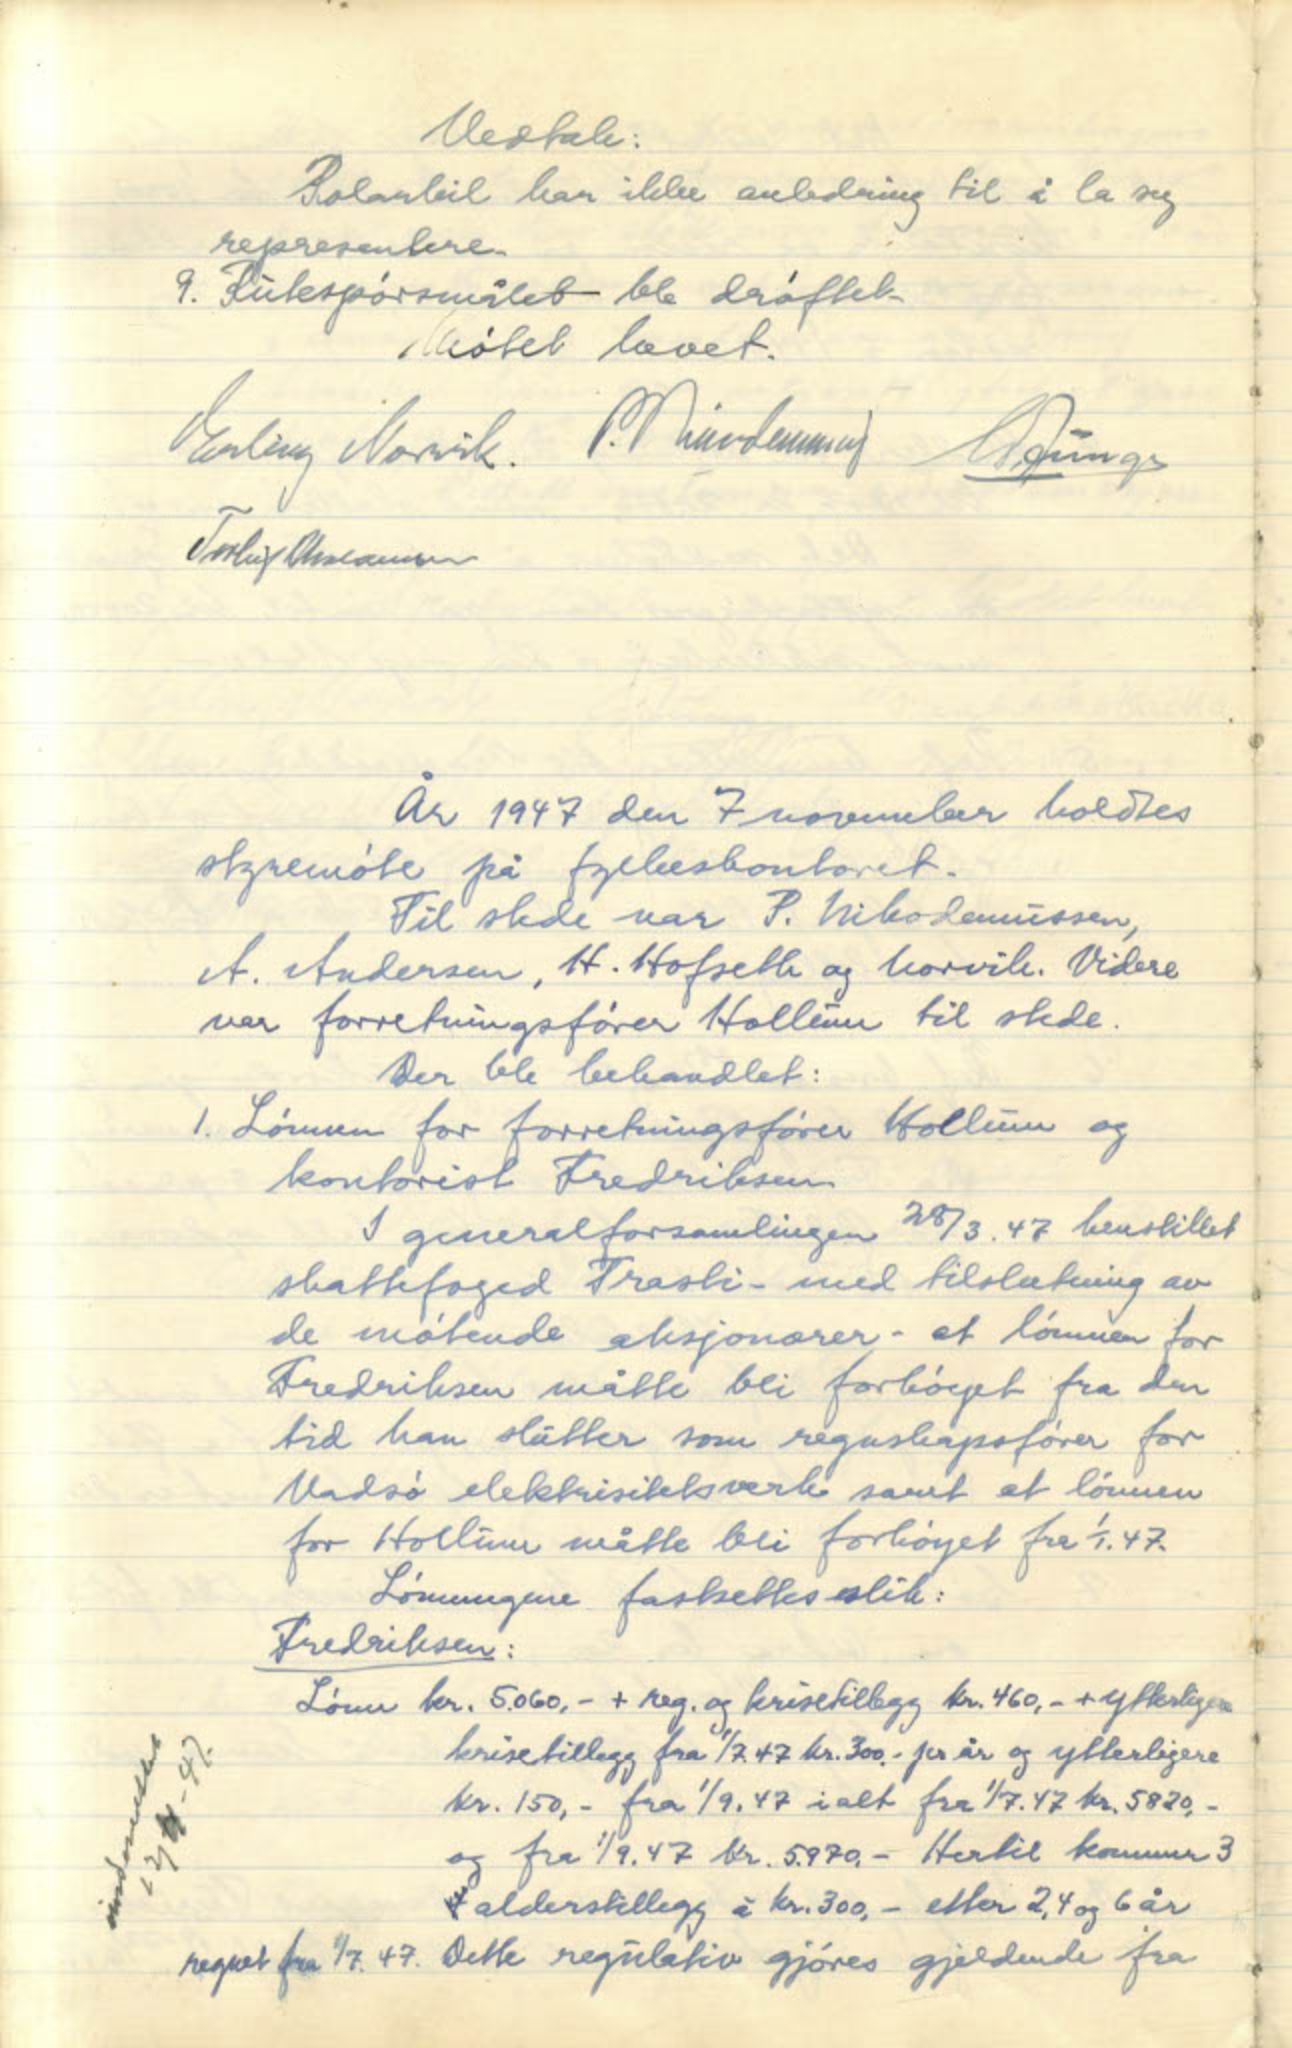 Vedtak:
Polarbil har ikke anledning til å la seg
representere.
9. Rutespørsmålet ble drøftet.
Møtet hevet.
Erling Norvik. P. Nikodemussen
År 1947 den 7 november holdtes
styremøte på fylkeskontoret.
Til stede var P. Nikodemussen,
A. Andersen, H. Hofseth og Norvik. Videre
var forretningsfører Hollum til stede.
Der ble behandlet:
1. Lønnen for forretningsfører Hollum og
kontorist Fredriksen
I generalforsamlingen 28/3.47 henstillet
skattefoged Trasti - med tilslutning av
de møtende aksjonærer - at lønnen for
Fredriksen måtte bli forhøyet fra den
tid han slutter som regnskapsfører for
Vadsø elektrisitetsverk samt at lønnen
for Hollum måtte bli forhøyet fra 1/1.47.
Lønningene fastsettes slik:
Fredriksen:
Lønn kr. 5.060,- + reg. og krisetillegg kr. 460,- + ytterligere
krisetillegg fra 1/7.47 kr. 300,- pr år og ytterligere
kr. 150,- fra 1/9.47 i alt fra 1/7.47 kr. 5820,-
og fra 1/9.47 kr. 5.970,- Hertil kommer 3
alderstillegg à kr. 300,- etter 2, 4 og 6 år
regnet fra 1/7.47. Dette regulativ gjøres gjeldende fra